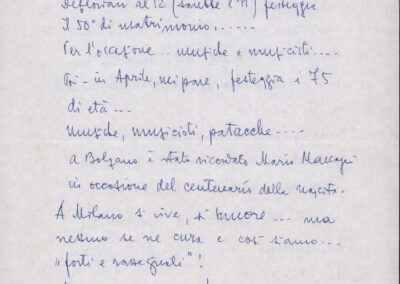 Deflorian al 12 (sarebbe l'11) festeggia
Il 50° di matrimonio.......
Per l'occasione... musiche e musicisti....
Poi - in Aprile, mi pare, festeggia i 75
di età ---
musiche, musicisti, patacche....
A Bolzano è stato ricordato Mario Mascagni
in occasione del centenario della nascita.
A Milano si vive, si muore... ma
nessuno se ne cura e così siamo...
"forti e rassegnati"!